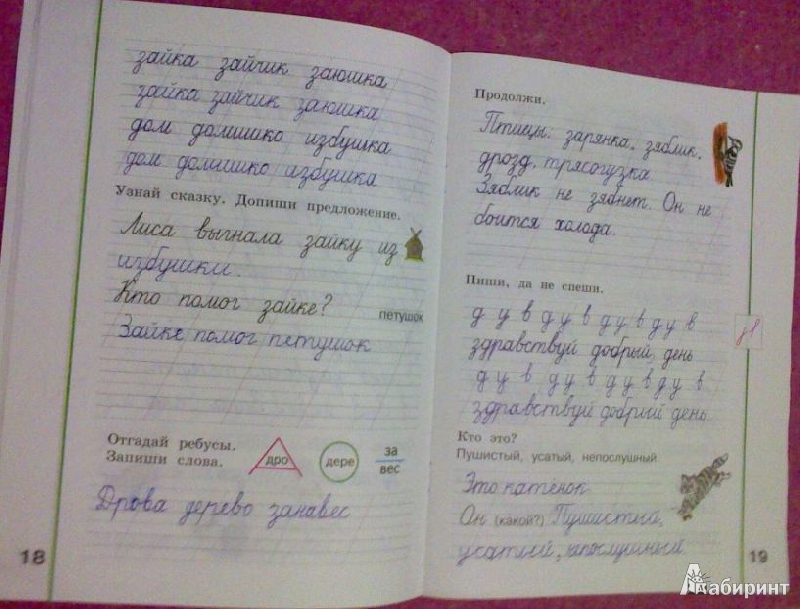 зайка зайчик заюшка
зайка зайчик заюшка
дом домишко избушка
дом домишко избушка
Узнай сказку. Допиши предложение.
Лиса выгнала зайку из
избушки.
Кто помог зайке?
петушок
Зайке помог петушок
Отгадай ребусы.
Запиши слова.
дро
дере
за
вес
Дрова дерево занавес
18
Продолжи.
Птицы: зарянка, зяблик,
дрозд, трясогузка
Зяблик не зябнет. Он не
боится холода.
Пиши, да не спеши.
д у в д у в д у в д у в
здравствуй добрый день
д у в д у в д у в д у в
здравствуй добрый день
Кто это?
Пушистый, усатый, непослушный
Это катёнок
Он (какой?) Пушистый,
усатый, непослушный
19
Лабиринт